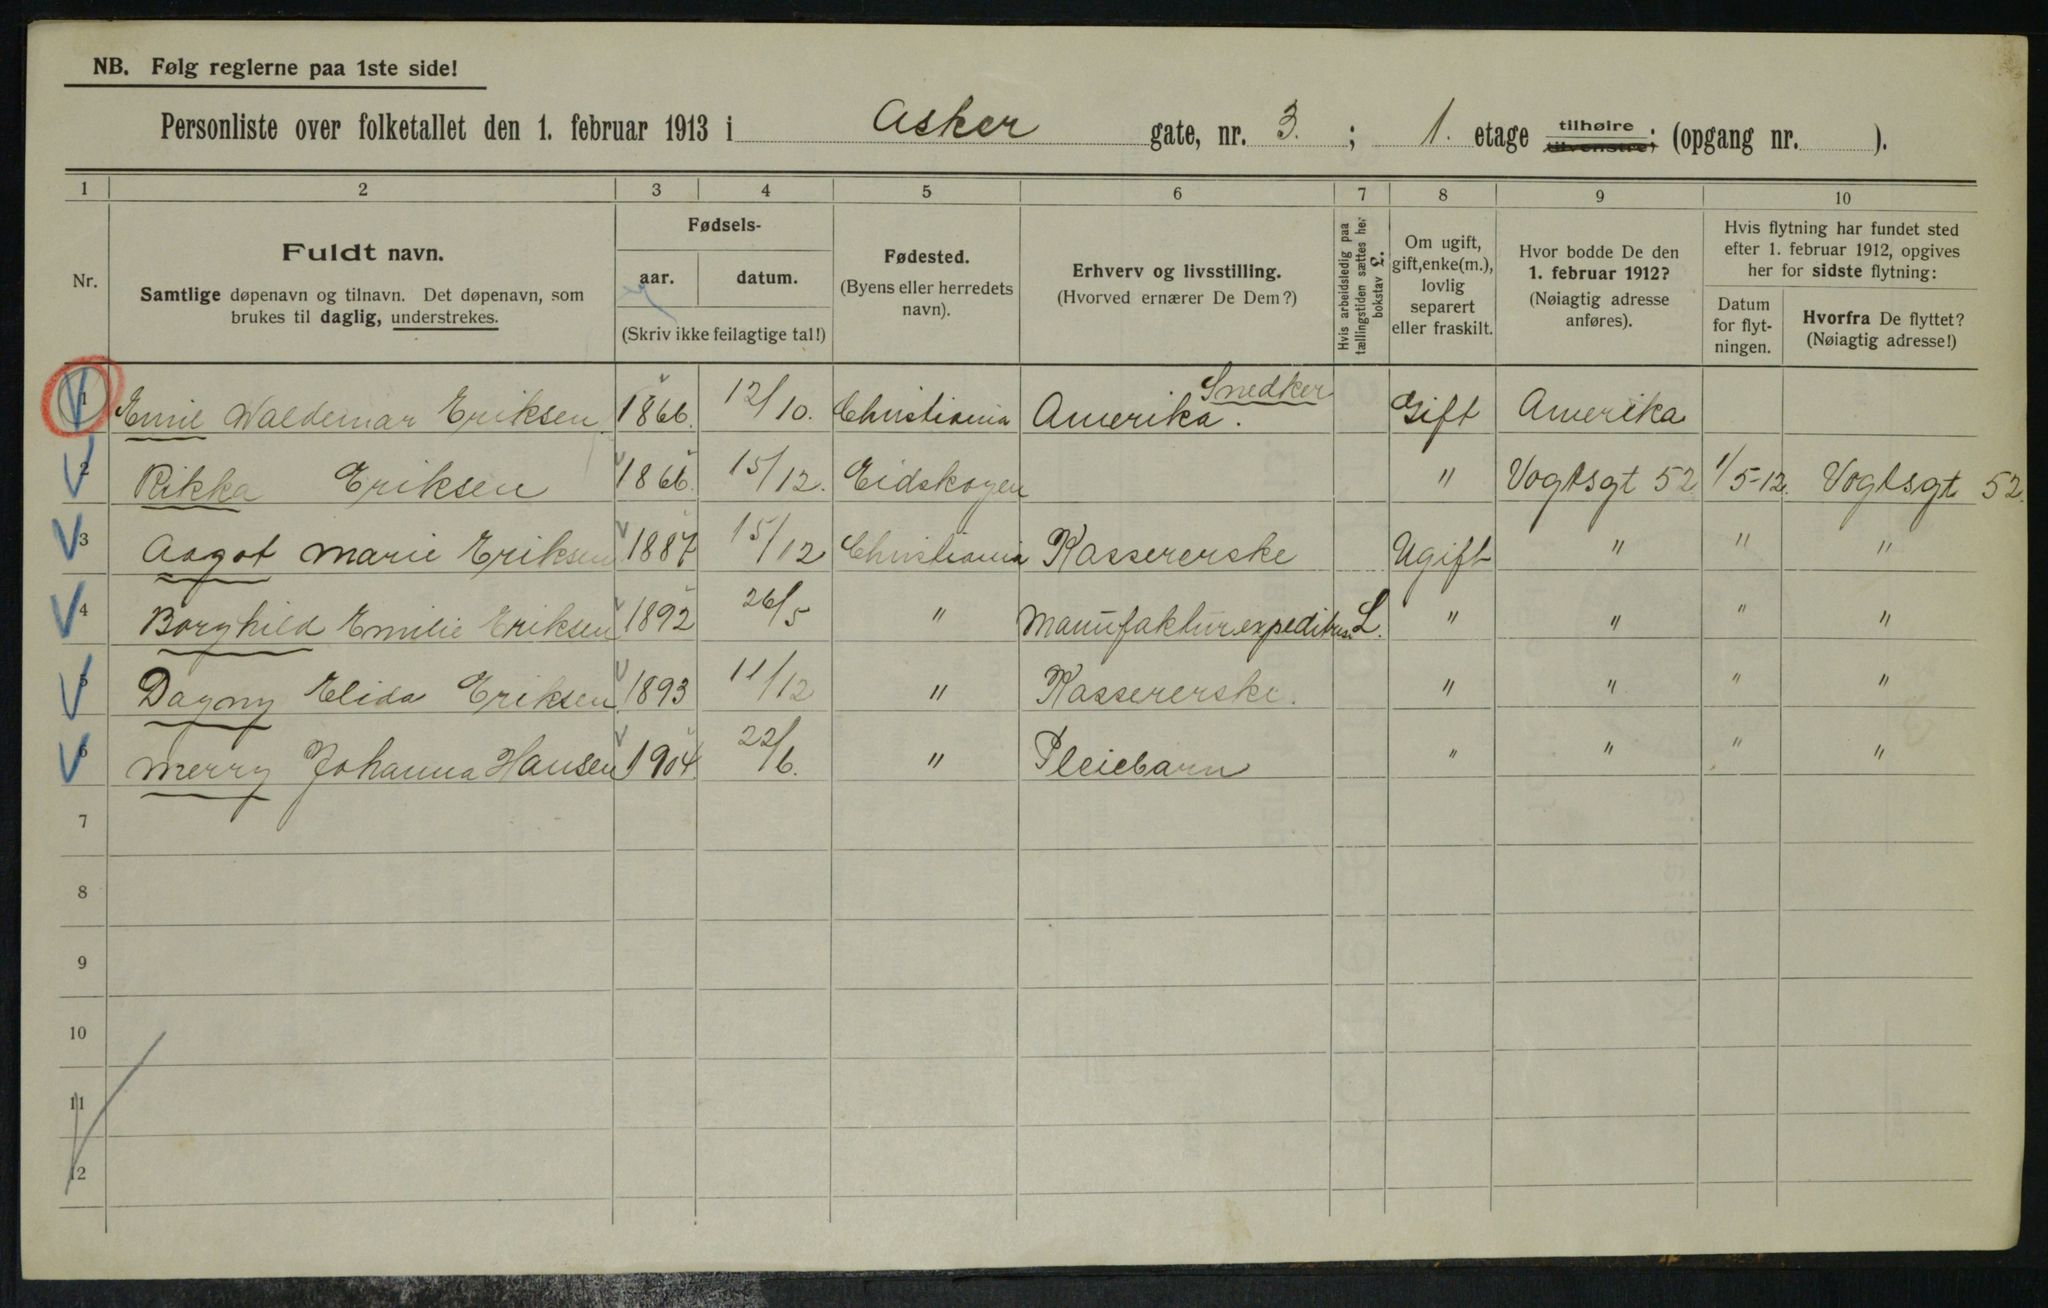 NB. Følg reglerne paa 1ste side!
Personliste over folketallet den 1. februar 1913 i Asker gate, nr. 3. ; 1. etage tilhøire tilvenstre; (opgang nr. ).
1 2 3 4 5 6 7 8 9 10
Nr.
Fuldt navn.
Samtlige døpenavn og tilnavn. Det døpenavn, som
brukes til daglig, understrekes.
Fødsels-
aar. datum.
(Skriv ikke feilagtige tal!)
Fødested.
(Byens eller herredets
navn).
Erhverv og livsstilling.
(Hvorved ernærer De Dem?)
Hvis arbeidsledig paa
tællingstiden sættes her
bokstav L.
Om ugift,
gift, enke(m.),
lovlig
separert
eller fraskilt.
Hvor bodde De den
1. februar 1912?
(Nøiagtig adresse
anføres).
Hvis flytning har fundet sted
efter 1. februar 1912, opgives
her for sidste flytning:
Datum
for flyt-
ningen.
Hvorfra De flyttet?
(Nøiagtig adresse!)
1 Emil Waldemar Eriksen 1866. 12/10. Christiania Amerika. Snedker Gift Amerika
2 Rikka Eriksen 1866. 15/12. Eidskogen " Vogtsgt 52 1/5-12. Vogtsgt 52.
3 Aagot Marie Eriksen 1887 15/12 Christiania Kassererske Ugift " " "
4 Borghild Emilie Eriksen 1892 26/5 " Manufakturexpeditrise L. " " " "
5 Dagny Elida Eriksen 1893 11/12 " Kassererske. " " " "
6 Merry Johanna Hansen 1904. 22/6. " Pleiebarn " " " "
7
8
9
10
11
12